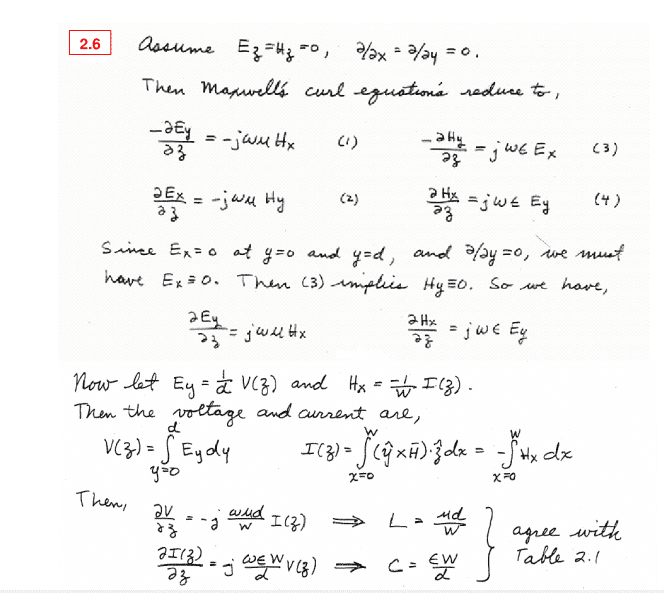 2.6 Assume E_z = H_z = 0, ∂/∂x = ∂/∂y = 0.
Then Maxwell's curl equations reduce to,
-∂E_y/∂z = -jωμ H_x (1) -∂H_y/∂z = jωε E_x (3)
∂E_x/∂z = -jωμ H_y (2) ∂H_x/∂z = jωε E_y (4)
Since E_x = 0 at y=0 and y=d, and ∂/∂y = 0, we must
have E_x ≡ 0. Then (3) implies H_y ≡ 0. So we have,
∂E_y/∂z = jωμ H_x ∂H_x/∂z = jωε E_y
Now let E_y = 1/d V(z) and H_x = -1/W I(z).
Then the voltage and current are,
V(z) = ∫_{y=0}^{d} E_y dy I(z) = ∫_{x=0}^{W} (ŷ × H̄)·ẑ dx = -∫_{x=0}^{W} H_x dx
Then,
∂V/∂z = -j ωμd/W I(z) ⇒ L = μd/W } agree with
∂I(z)/∂z = j ωεW/d V(z) ⇒ C = εW/d } Table 2.1